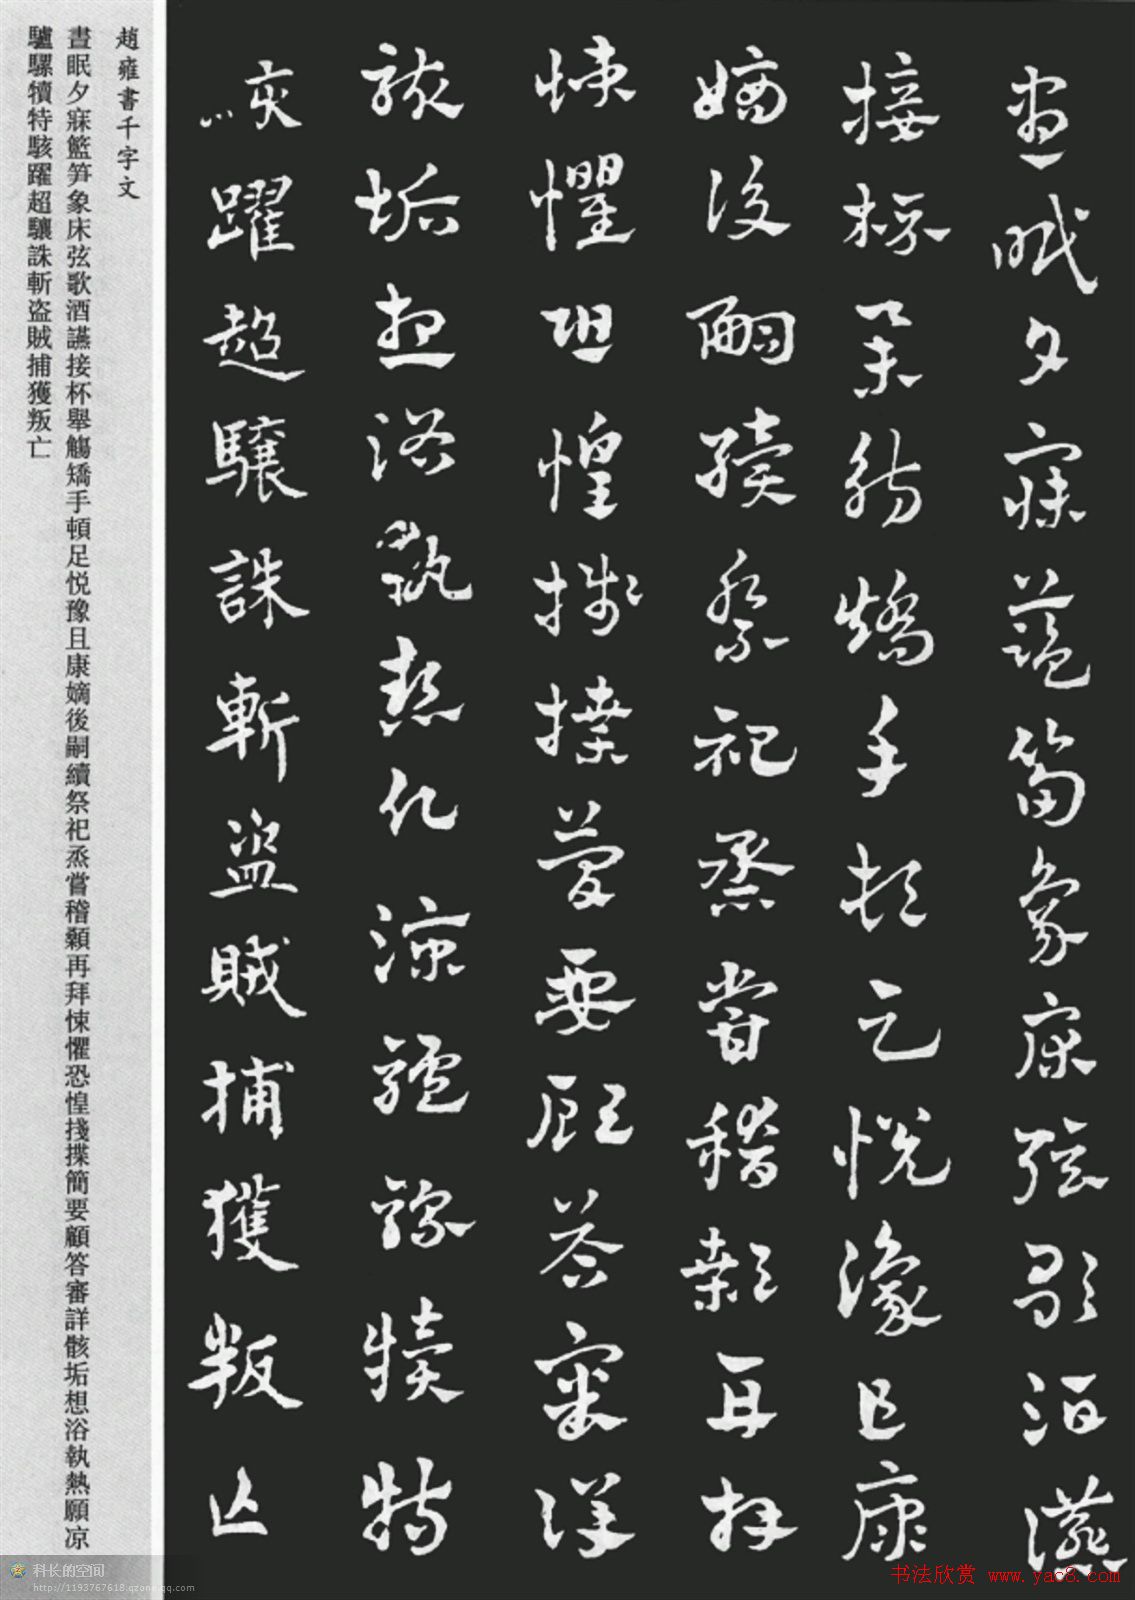 晝眠夕寐藍笋象床弦歌酒讌
接杯舉觴矯手頓足悅豫且康
嫡後嗣續祭祀烝嘗稽顙再拜
悚懼恐惶牋牒簡要顧答審詳
骸垢想浴執熱願凉驢騾犢特
駭躍超驤誅斬盗賊捕獲叛亡
趙雍書千字文
晝眠夕寐籃笋象床弦歌酒讌接杯舉觴矯手頓足悦豫且康嫡後嗣續祭祀烝嘗稽顙再拜悚懼恐惶揲簡要顧答審詳骸垢想浴執熱願凉
驢騾犢特駭躍超驤誅斬盗賊捕獲叛亡
科长的空间
http://1193767618.qzone.qq.com
书法欣赏 www.yac8.com